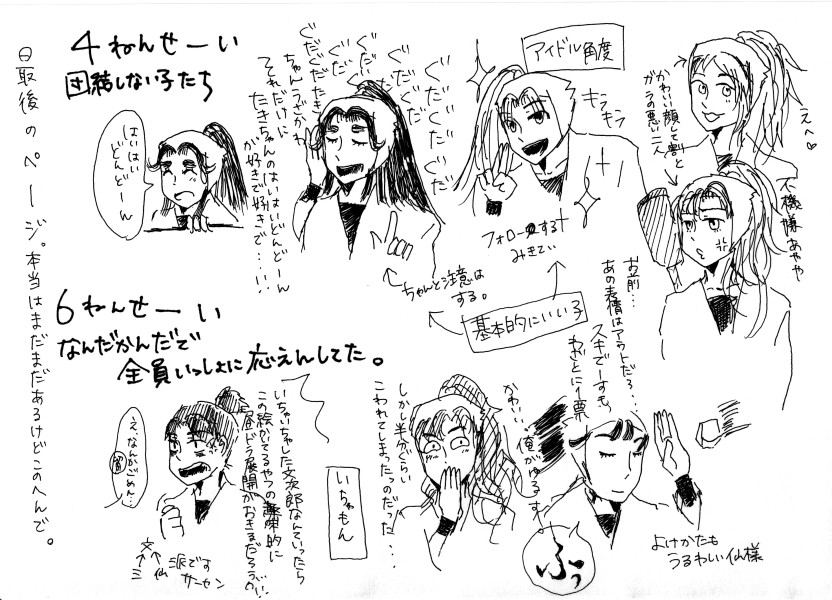 4ねんせーい
団結しない子たち
はいはい
どんどーん
ぐだぐだ
ぐだぐだたき
ちゃんうざかわ
それだけに
たきちゃんのはいはいどんどーん
が好きで好きで…!!
ぐだぐだぐだ
ぐだぐだ
アイドル角度
キラキラ
フォローする十
みきてぃ
かわいい顔して割と
ガラの悪い二人
えへ♡
不機嫌あやや
ちゃんと注意は
する。
基本的にいい子
最後のページ。本当はまだまだあるけどこのへんで。
6ねんせーい
なんだかんだで
全員いっしょに応えんしてた。
お前…
あの表情はアウトだろ…
スキでーすも、
わざとに1票
かわいい、俺がゆるす
しかし半分ぐらい
こわれてしまったのだった…
いちゃもん
いちゃいちゃした文次郎なんていったら
この絵かいてるやつの趣味的に
昼ドラ展開がおきるだろうがい
え、なんかごめん…
留
文
仙
三
派です
サーセン
ふっ
よけかたも
うるわしい仙様